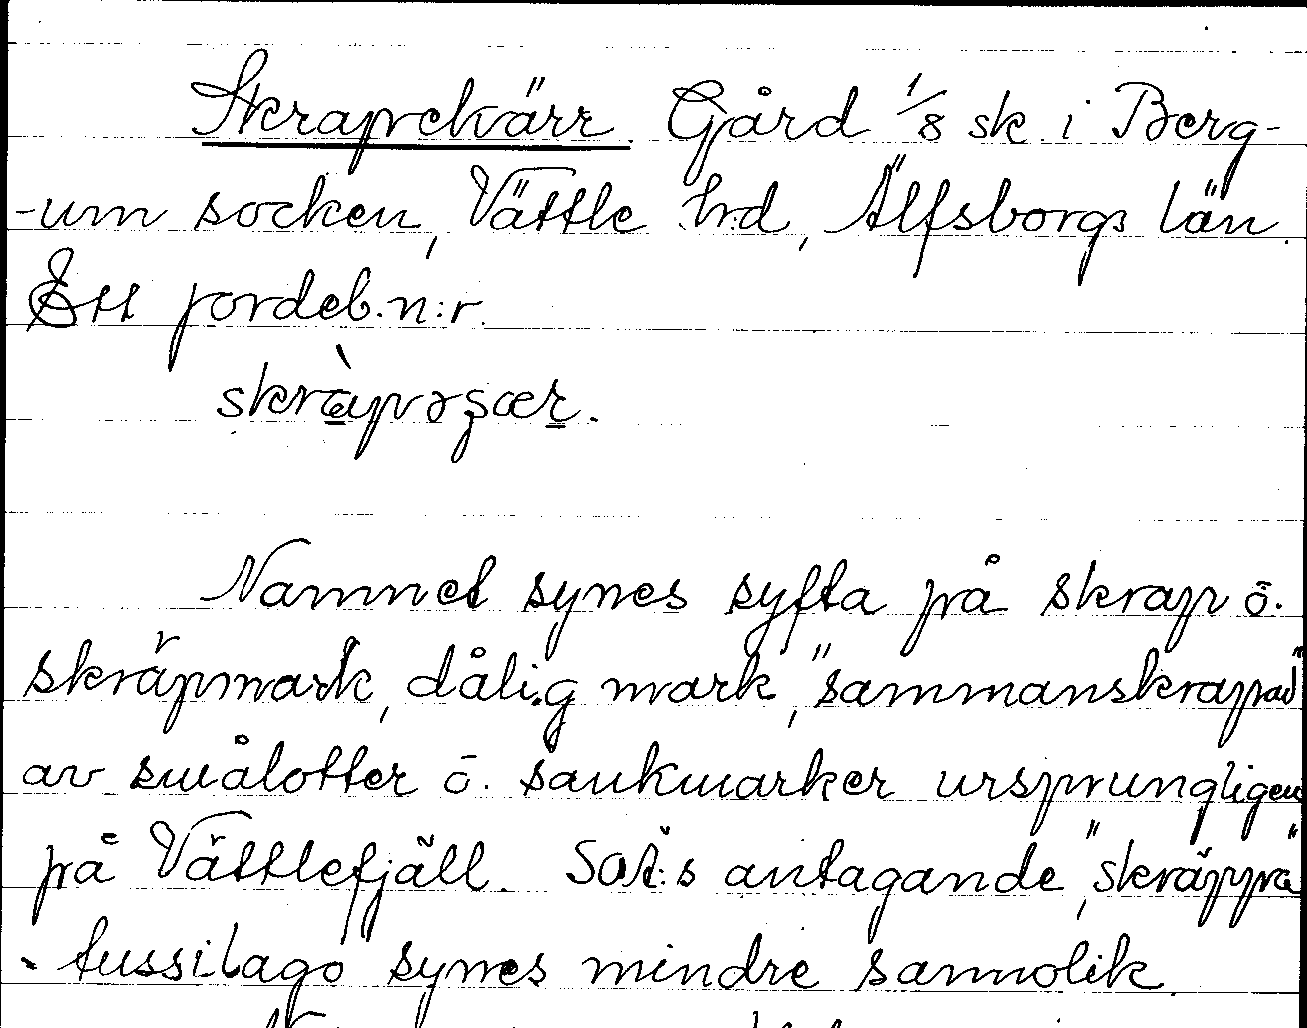 Skrapekärr. Gård 1/8 sk. i Berg-
-um socken, Vättle h:d, Älfsborgs län.
Ett jordeb.n:r.
skràpəʂær.
Namnet synes syfta på skrap ō.
skräpmark, dålig mark, "sammanskrapad"
av smålotter ō. sankmarker ursprungligen
på Vättlefjäll. SOÄ:s antagande, "skräppa"
- tussilago synes mindre sannolik.